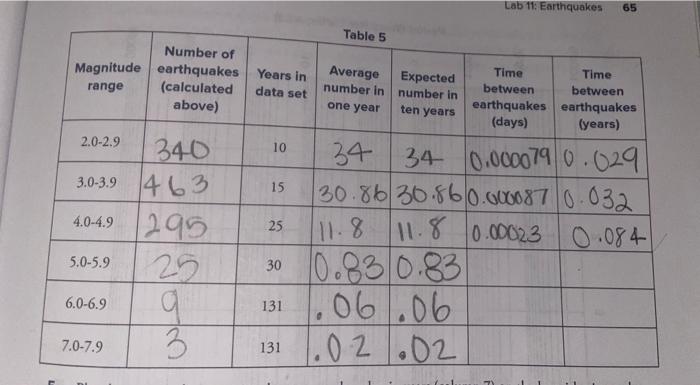 Lab 11: Earthquakes 65
Table 5
Magnitude range Number of earthquakes (calculated above) Years in data set Average number in one year Expected number in ten years Time between earthquakes (days) Time between earthquakes (years)
2.0-2.9 340 10 34 34 0.000079 0.029
3.0-3.9 463 15 30.86 30.86 0.000087 0.032
4.0-4.9 295 25 11.8 11.8 0.00023 0.084
5.0-5.9 25 30 0.83 0.83
6.0-6.9 9 131 .06 .06
7.0-7.9 3 131 .02 .02